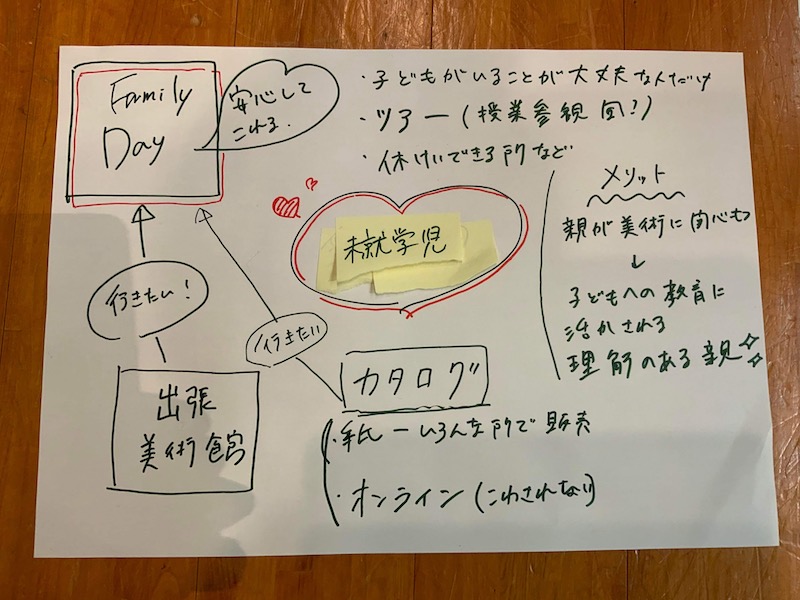 Family
Day
安心して
これる.
・子どもがいることが大丈夫な人だけ
・ツアー(授業参観 型!)
・休けいできる所など
メリット
親が美術に関心もつ
↓
子どもへの教育に
活かされる
理解のある親
未就学児
行きたい!
行きたい
出張
美術館
カタログ
・紙ーいろんな所で販売
・オンライン(こわされない)